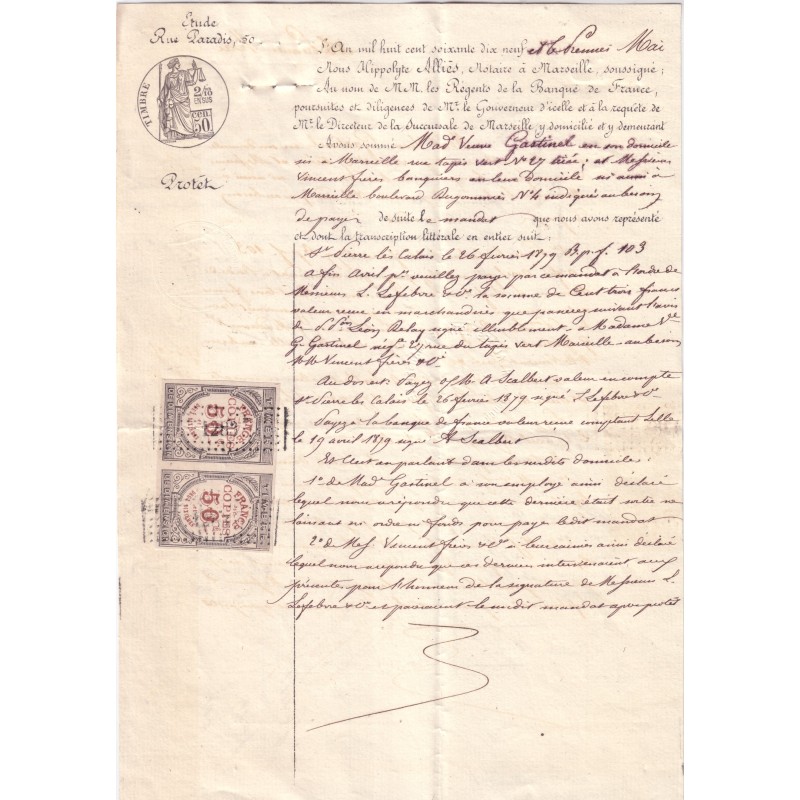 Etude
Rue Paradis, 50
TIMBRE
2/10
EN SUS
50 cen
Protêt
L'An mil huit cent soixante dix neuf et le premier Mai
Nous Hippolyte Alliès, Notaire à Marseille, soussigné;
Au nom de M.M. les Régents de la Banque de France,
poursuites et diligences de Mr. le Gouverneur d'icelle et à la requête de
Mr. le Directeur de la Succursale de Marseille, y domicilié et y demeurant
Avons sommé Made Veuve Gastinel en son domicile
sis à Marseille rue tapis vert No 27 ; et Messieurs
Vincent frères banquiers en leur Domicile sis aussi à
Marseille boulevard No 4 indiqués au besoin
de payer de suite le mandat que nous avons représenté
et dont la transcription littérale en entier suit:
St Pierre lès Calais le 26 février 1879 B.p.f. 103
A fin Avril px veuillez payer par ce mandat à l'ordre de
Messieurs L. Lefebvre & Ce la somme de Cent trois francs
valeur reçue en marchandises que passerez suivant l'avis
de Léon Relay signé illisiblement à Madame Ve
G. Gastinel négt 27 rue du tapis vert Marseille au besoin
M.M. Vincent frères & Ce
Au dos est: Payez o/ M. A Scalbert valeur en compte
St Pierre les Calais le 26 février 1879 signé L Lefebvre & Ce
Payez à la banque de france valeur reçue comptant Lille
le 19 avril 1879 signé A Scalbert
Et c'est en parlant dans les susdits domiciles:
1o de Made Gastinel à son employé ainsi déclaré
lequel nous a répondu que cette dernière était sortie ne
laissant ni ordre ni fonds pour payer ledit mandat
2o de Mes. Vincent frères & Ce à leur caissier ainsi déclaré
lequel nous a répondu que ces derniers intervenaient aux
présentes pour l'honneur de la signature de Messieurs L.
Lefebvre & Ce et paieraient le susdit mandat après protêt
FRANCE
COPIES
50
FRANCE
COPIES
50